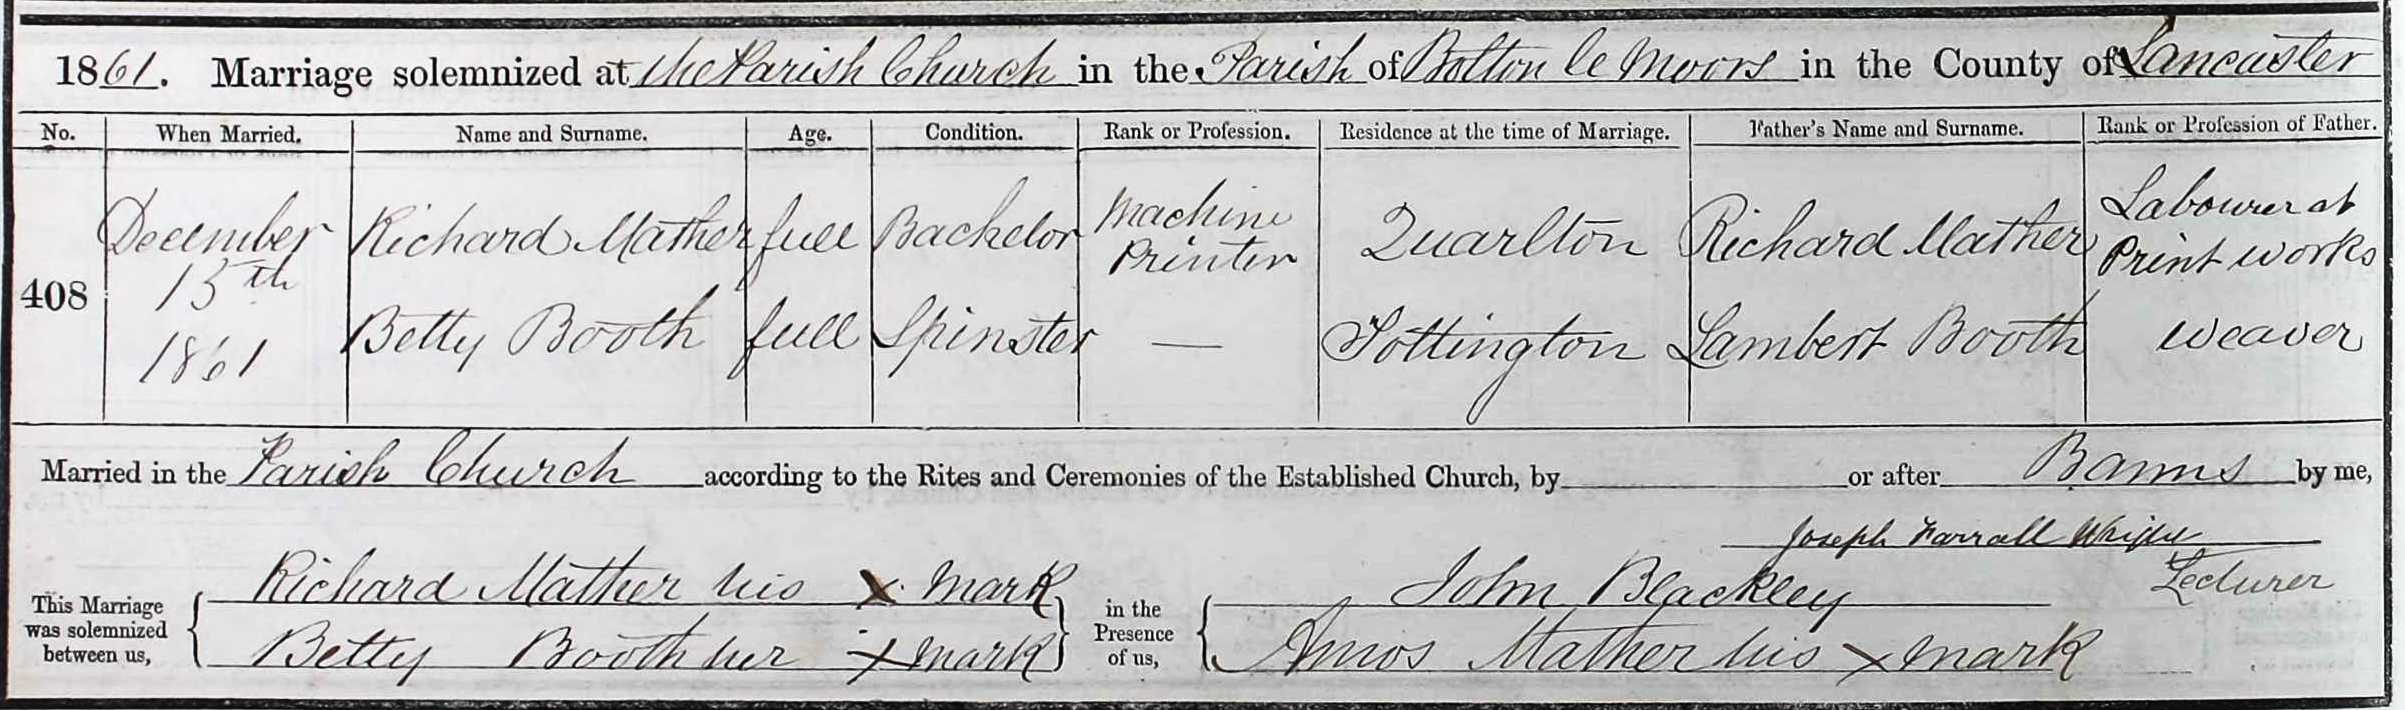 1861. Marriage solemnized at the Parish Church in the Parish of Bolton le Moors in the County of Lancaster
No. When Married. Name and Surname. Age. Condition. Rank or Profession. Residence at the time of Marriage. Father's Name and Surname. Rank or Profession of Father.
408
December 15th 1861
Richard Mather full Bachelor Machine Printer Quarlton Richard Mather Labourer at Print works
Betty Booth full Spinster — Tottington Lambert Booth Weaver
Married in the Parish Church according to the Rites and Ceremonies of the Established Church, by or after Banns by me,
Joseph Farrall Wright
Lecturer
This Marriage was solemnized between us,
Richard Mather his X mark
Betty Booth her X mark
in the Presence of us,
John Blackley
Amos Mather his X mark